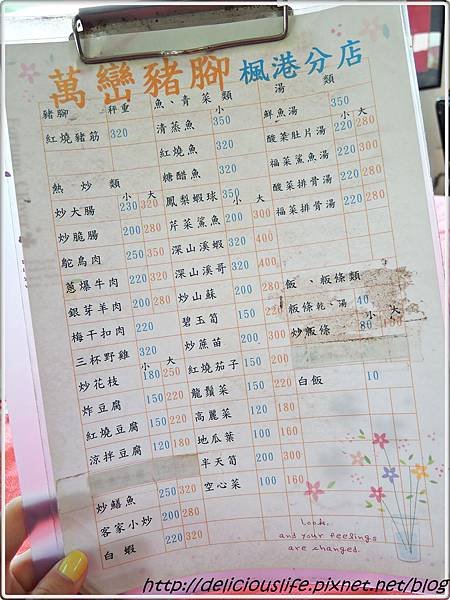 萬巒豬腳 楓港分店
豬腳 秤重
紅燒豬筋 320
熱炒類
小 大
炒大腸 230 320
炒脆腸 200 280
鴕鳥肉 250 350
蔥爆牛肉 220 320
銀芽羊肉 200 280
梅干扣肉 220
三杯野雞 320
小 大
炒花枝 180 250
炸豆腐 150 220
紅燒豆腐 150 220
涼拌豆腐 120 180
炒鱔魚 250 320
客家小炒 200 280
白蝦 220 320
魚、青菜類
小
清蒸魚 350
紅燒魚 320
糖醋魚 320
鳳梨蝦球 350
小 大
芹菜鯊魚 200 300
深山溪蝦 320 400
深山溪哥 320 400
炒山蘇 200 280
碧玉筍 150 220
炒蔴苗 200 300
紅燒茄子 150 220
龍鬚菜 150 220
高麗菜 100 180
地瓜葉 100 160
半天筍 200 300
空心菜 100 160
湯類
鮮魚湯 350
小 大
酸菜肚片湯 220 280
福菜鯊魚湯 220 300
酸菜排骨湯 220 280
福菜排骨湯 220 280
飯、粄條類
粄條乾、湯 40
小 大
炒粄條 80
白飯 10
Look,
and your feelings
are changed.
http://deliciouslife.pixnet.net/blog